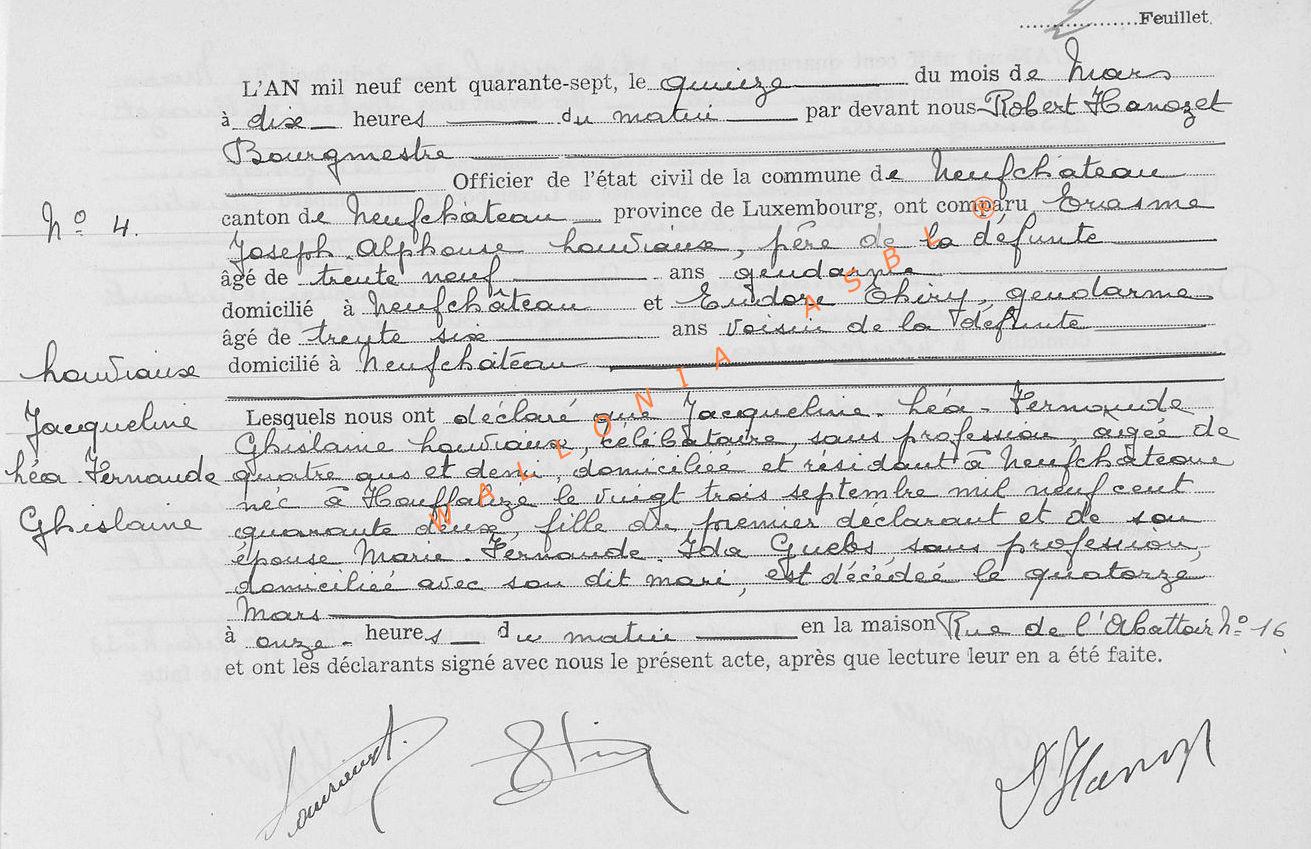 Feuillet.
L'AN mil neuf cent quarante-sept, le quinze du mois de Mars
à dix heures du matin par devant nous Robert Hanozet
Bourgmestre
Officier de l'état civil de la commune de Neufchâteau
N° 4.
canton de Neufchâteau province de Luxembourg, ont comparu Erasme
Joseph Alphonse Louviaux, père de la défunte
âgé de trente neuf ans gendarme
domicilié à Neufchâteau et Eudore Thiry, gendarme
âgé de trente six ans voisin de la défunte
domicilié à Neufchâteau
Louviaux
Jacqueline
Léa Fernande
Ghislaine
Lesquels nous ont déclaré que Jacqueline - Léa - Fernande
Ghislaine Louviaux, célibataire, sans profession, agée de
quatre ans et demi, domiciliée et résidant à Neufchâteau
née à Houffalize le vingt trois septembre mil neuf cent
quarante deux, fille du premier déclarant et de son
épouse Marie - Fernande Ida Guebs sans profession,
domiciliée avec son dit mari, est décédée le quatorze
Mars
à onze - heures du matin en la maison Rue de l'Abattoir N° 16
et ont les déclarants signé avec nous le présent acte, après que lecture leur en a été faite.
WALLONIA ASBL ®